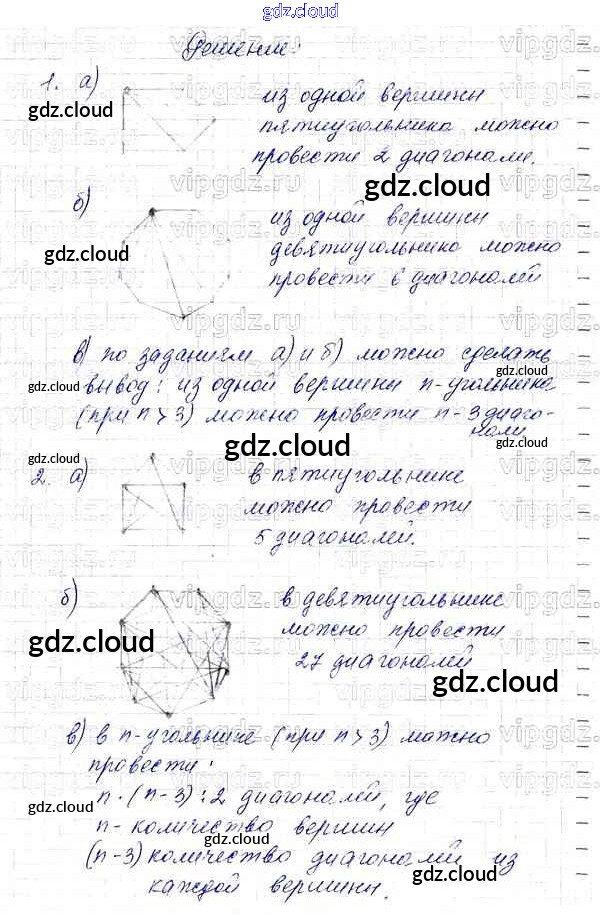 gdz.cloud
Решение:
1. а)
из одной вершины
пятиугольника можно
провести 2 диагонали.
gdz.cloud
gdz.cloud
б)
из одной вершины
девятиугольника можно
провести 6 диагоналей
gdz.cloud
в) по заданиям а) и б) можно сделать
вывод: из одной вершины n-угольника
(при n > 3) можно провести n-3 диаго-
нали
gdz.cloud
gdz.cloud
gdz.cloud
gdz.cloud
gdz.cloud
2. а)
в пятиугольнике
можно провести
5 диагоналей.
б)
в девятиугольнике
можно провести
27 диагоналей
gdz.cloud
gdz.cloud
в) в n-угольнике (при n > 3) можно
провести:
n · (n-3) : 2 диагоналей, где
n - количество вершин
(n-3) количество диагоналей из
каждой вершины.
gdz.cloud
gdz.cloud
gdz.cloud